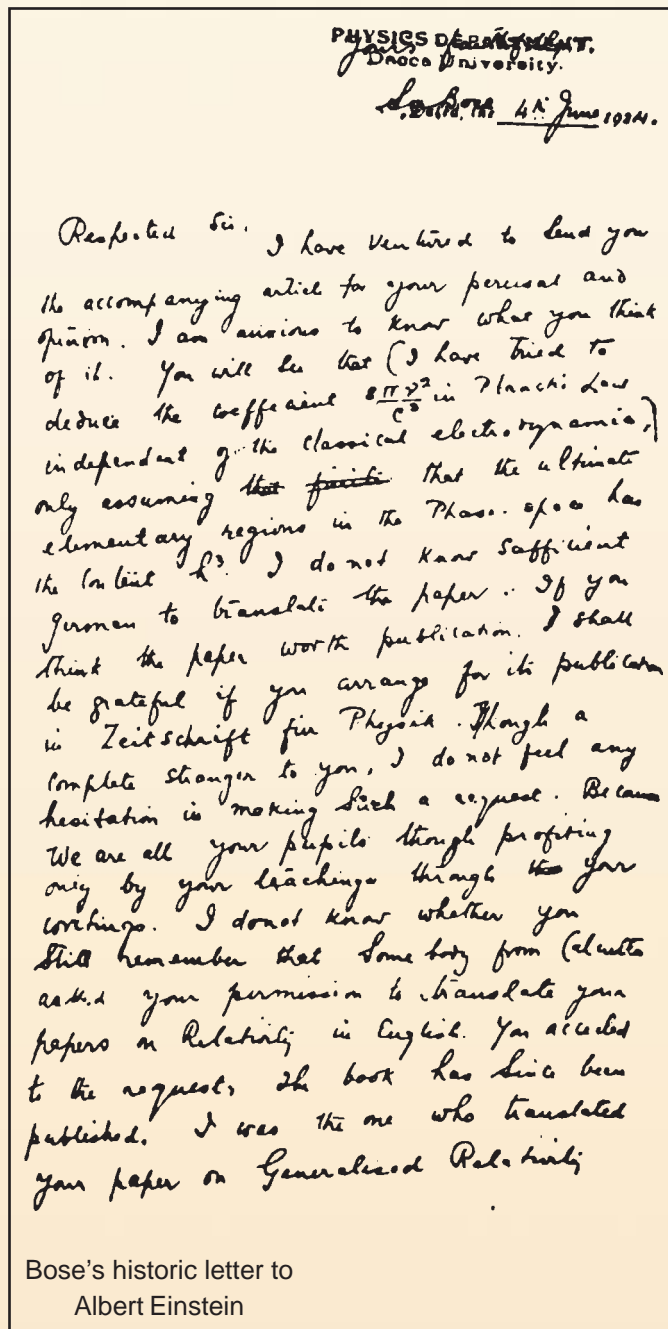 PHYSICS DEPARTMENT.
Yours faithfully
Dacca University.
S. N. Bose
Dacca, the 4th June 1924.
Respected Sir, I have ventured to send you
the accompanying article for your perusal and
opinion. I am anxious to know what you think
of it. You will see that (I have tried to
deduce the coefficient 8πν²/c³ in Planck's Law
independent of the classical electrodynamics,)
only assuming that the ultimate
elementary regions in the Phase-space has
the content h³. I do not know sufficient
German to translate the paper. If you
think the paper worth publication. I shall
be grateful if you arrange for its publication
in Zeitschrift für Physik. Though a
complete stranger to you, I do not feel any
hesitation in making such a request. Because
We are all your pupils though profiting
only by your teachings through your
writings. I donot know whether you
Still remember that Somebody from Calcutta
asked your permission to translate your
papers on Relativity in English. You acceded
to the request. The book has since been
published. I was the one who translated
your paper on Generalised Relativity
Bose's historic letter to
Albert Einstein